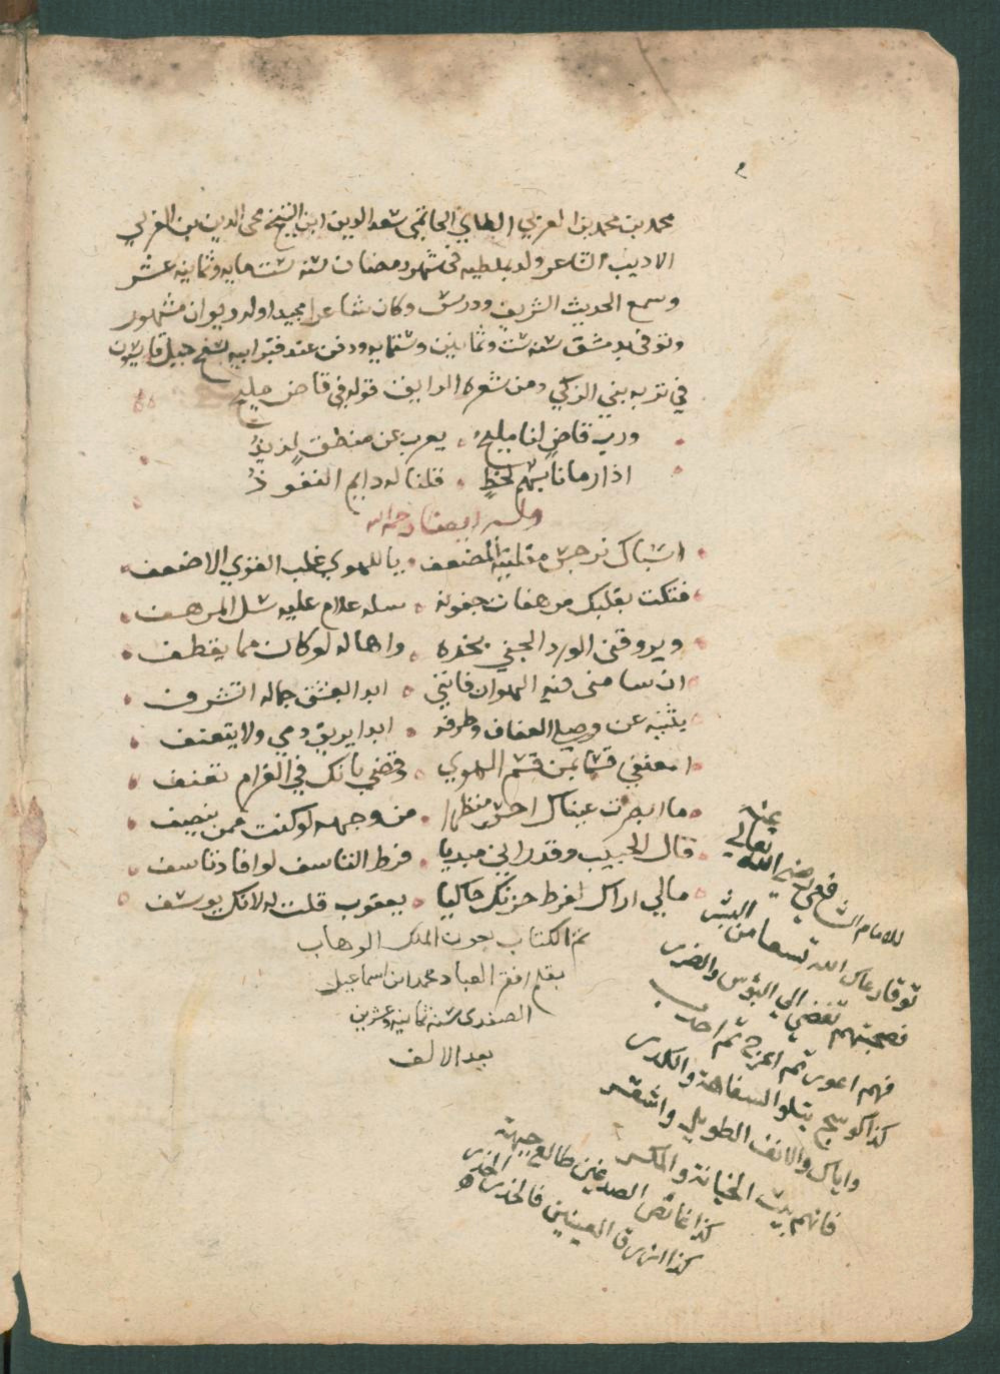 محمد بن محمد بن العربي الطاي الحاتمي سعد الدين ابن الشيخ محي الدين بن العربي
الاديب الشاعر ولد بملطيه في شهر رمضان سنه ست مايه وثمانيه عشر
وسمع الحديث الشريف ودرس وكان شاعرا مجيدا وله ديوان مشهور
وتوفي بدمشق سنه ست وثمانين وستمايه ودفن عند قبر ابيه بسفح جبل قاسيون
في تربه بني الزكي ومن شعره الرايق قوله في قاض مليح
ورب قاضٍ لنا مليحٌ يعرب عن منطقٍ لذيذُ
اذا رمانا بسهم لحظٍ قلنا له دايم النفوذُ
وله ايضا رحمه الله
اسباك نرجس مقلتيه المضعف يا للهوي غلب القوي الاضعف
فتكت بقلبك مرهفات جفونه سله علام عليه سل المرهف
ويروقني الورد الجني بخده واها له لو كان مما يقطف
ان سامني فيه الهوان فانني ابدا بعشق جماله اتشرف
يثنيه عن وصلي العفاف وطرفه ابدا يريق دمي ولا يتعفف
امعنفي قسما بمن قسم الهوي وقضي بانك في الغرام تعنف
ما ابصرت عيناك احسن منظرا من وجهه لو كنت ممن ينصف
قال الحبيب وقد راني مبديا فرط التاسف لو افاد تاسف
مالي اراك لفرط حزنك حاكيا يعقوب قلت له لانك يوسف
تم الكتاب بعون الملك الوهاب
بقلم افقر العباد محمد ابن اسماعيل
الصفدي سنة ثمانيه وعشرين
بعد الالف
للامام الشافعي رضي الله تعالي عنه
توق رعاك الله تسعا من البشر
فصحبتهم تفضي الي البؤس والضرر
فهم اعور ثم اعرج ثم احدب
كذا كوسج يتلو السفاهة والكدر
واياك والانف الطويل واشقر
فانهم بيت الخيانة والمكر
كذا غائص الصدغين طالع جبهته
كذا ازرق العينين فالحذر الحذر